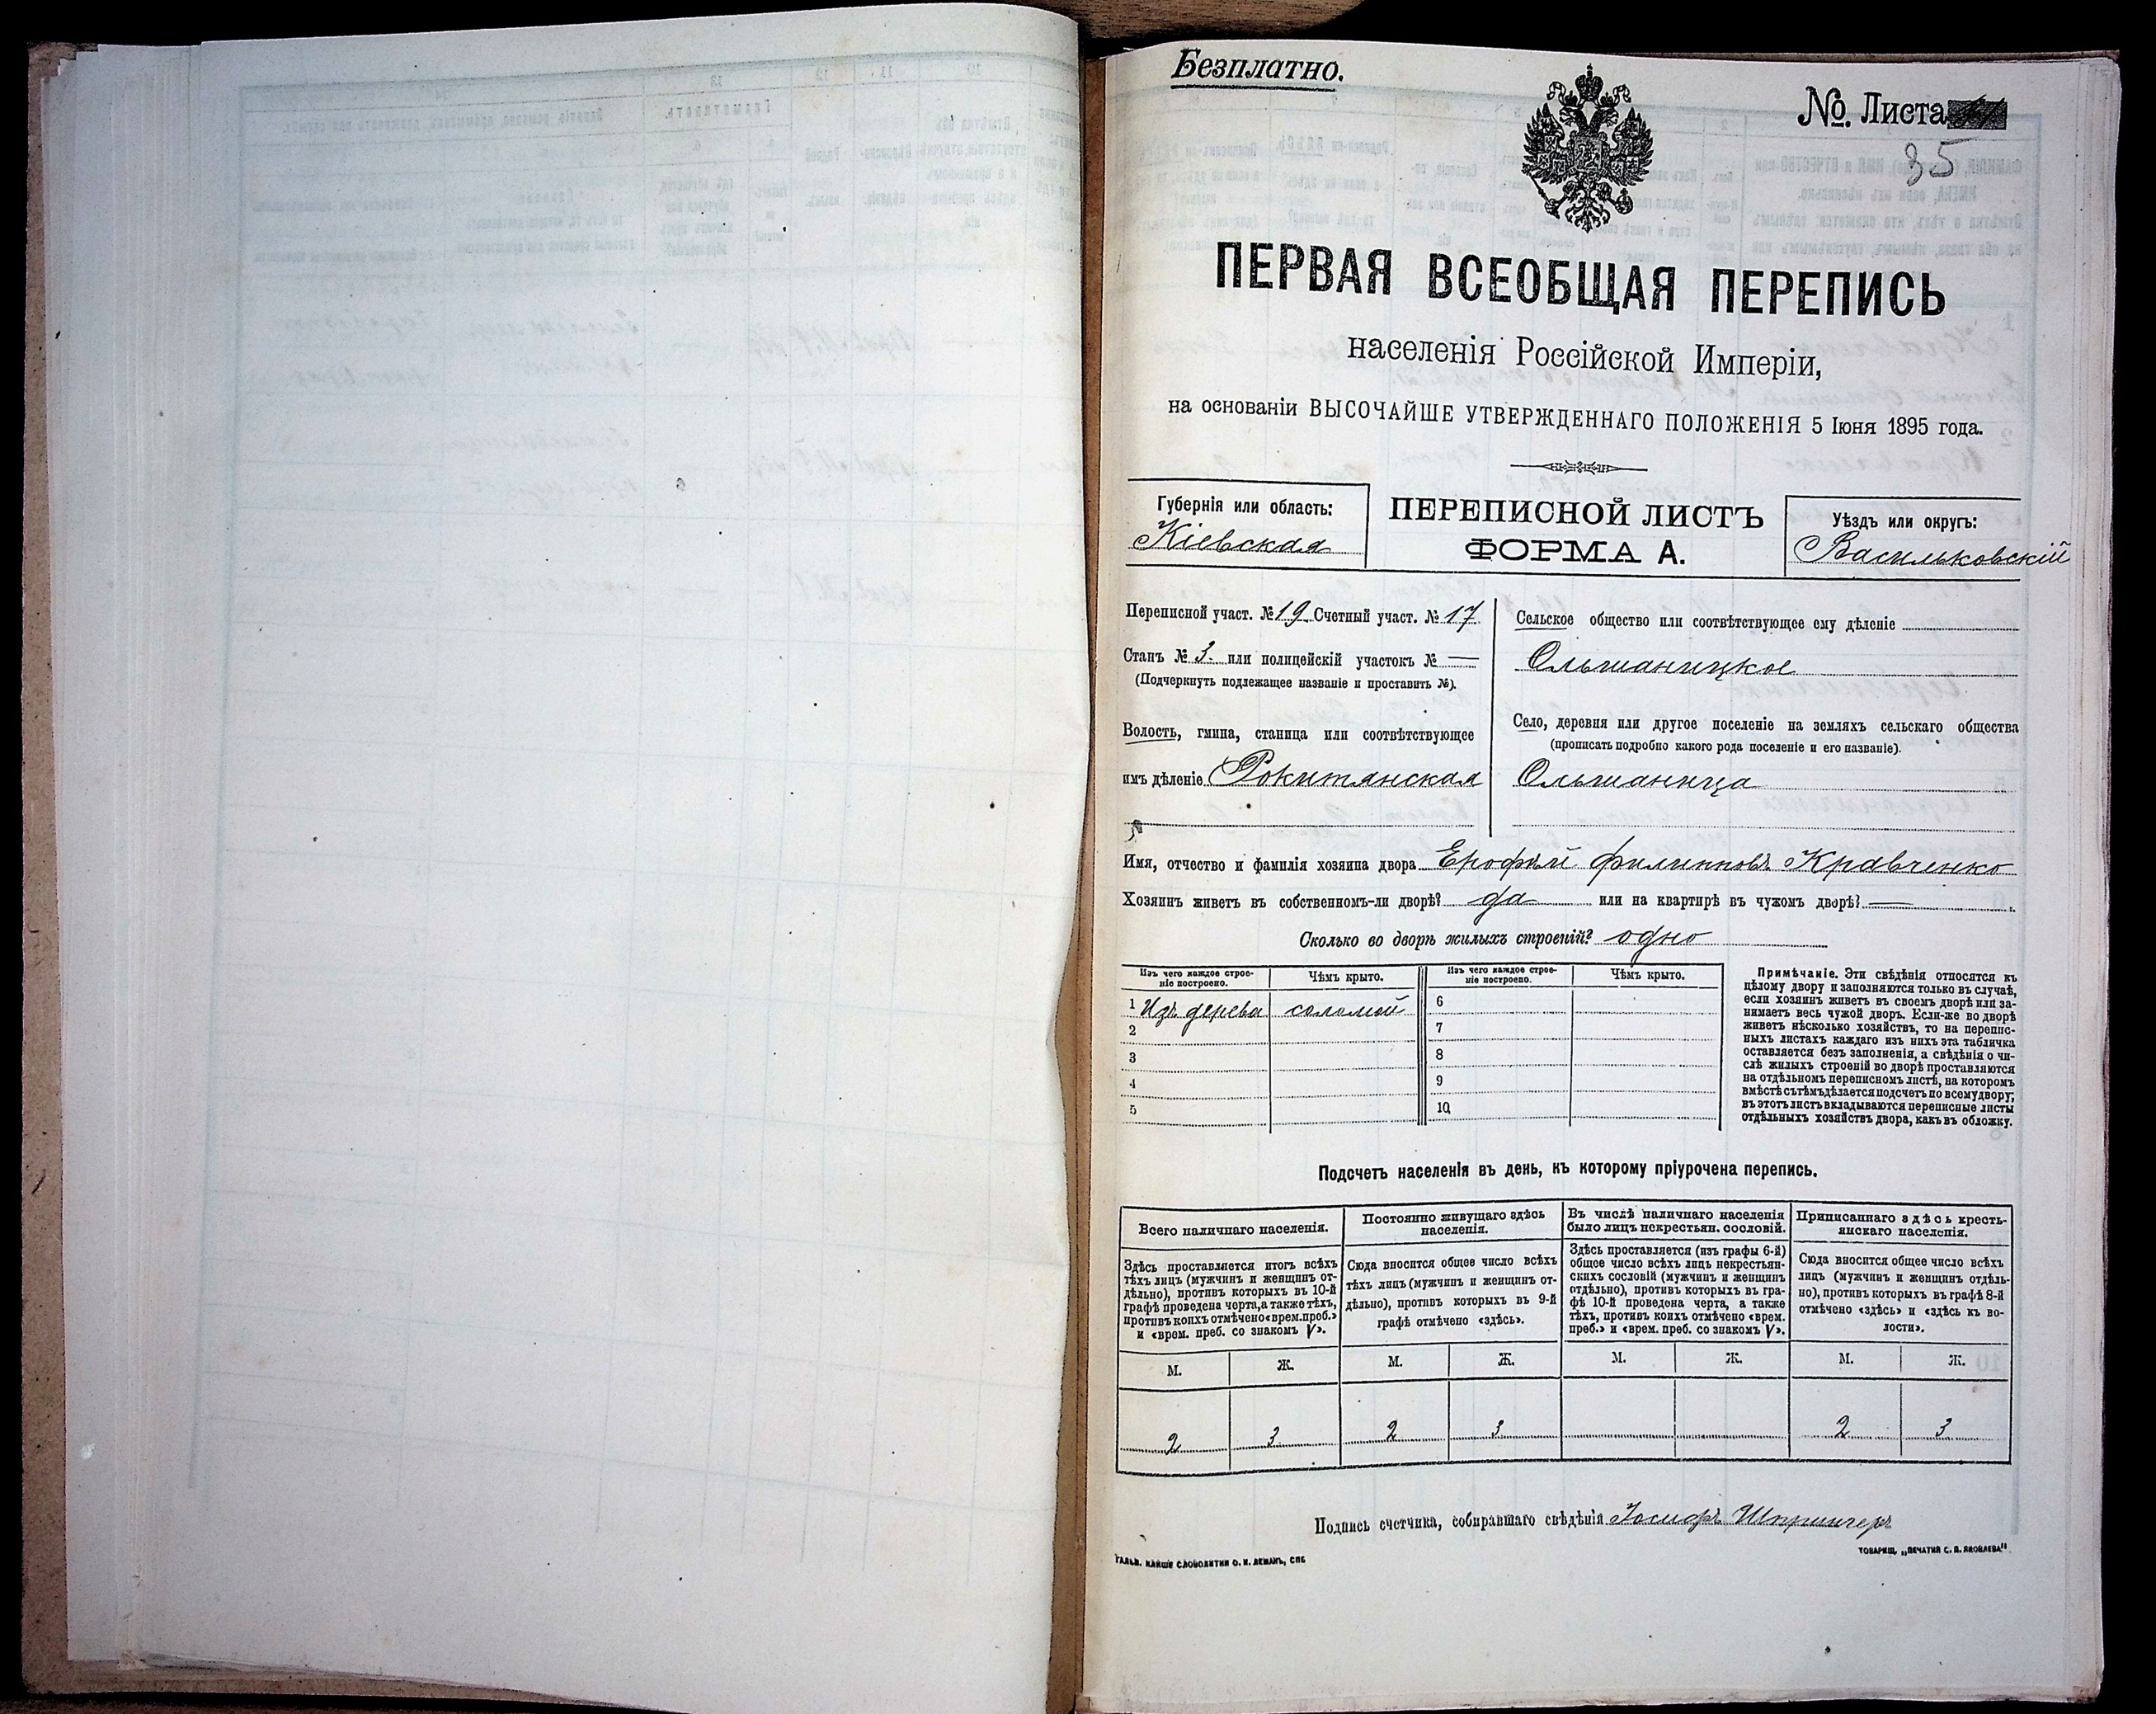 Безплатно.
№. Листа
35
ПЕРВАЯ ВСЕОБЩАЯ ПЕРЕПИСЬ
населенія Россійской Имперіи,
на основаніи ВЫСОЧАЙШЕ УТВЕРЖДЕННАГО ПОЛОЖЕНІЯ 5 Іюня 1895 года.
Губернія или область:
Кіевская
ПЕРЕПИСНОЙ ЛИСТЪ
ФОРМА А.
Уѣздъ или округъ:
Васильковскій
Переписной участ. № 19 Счетный участ. № 17
Станъ № 3. или полицейскій участокъ № —
(Подчеркнуть подлежащее названіе и проставить №).
Волость, гмина, станица или соотвѣтствующее
имъ дѣленіе Рокитянская
Сельское общество или соотвѣтствующее ему дѣленіе
Ольшаницкое
Село, деревня или другое поселеніе на земляхъ сельскаго общества
(прописать подробно какого рода поселеніе и его названіе).
Ольшаница
Имя, отчество и фамилія хозяина двора Ерофѣй Филипповъ Кравченко
Хозяинъ живетъ въ собственномъ-ли дворѣ? да или на квартирѣ въ чужомъ дворѣ? —
Сколько во дворѣ жилыхъ строеній? одно
Изъ чего каждое строе-
ніе построено.
Чѣмъ крыто.
Изъ чего каждое строе-
ніе построено.
Чѣмъ крыто.
1 Изъ дерева соломой 6
2 7
3 8
4 9
5 10
Примѣчаніе. Эти свѣдѣнія относятся къ
цѣлому двору и заполняются только въ случаѣ,
если хозяинъ живетъ въ своемъ дворѣ или за-
нимаетъ весь чужой дворъ. Если-же во дворѣ
живетъ нѣсколько хозяйствъ, то на перепис-
ныхъ листахъ каждаго изъ нихъ эта табличка
оставляется безъ заполненія, а свѣдѣнія о чи-
слѣ жилыхъ строеній во дворѣ проставляются
на отдѣльномъ переписномъ листѣ, на которомъ
вмѣстѣ съ тѣмъ дѣлается подсчетъ по всему двору;
въ этотъ листъ вкладываются переписные листы
отдѣльныхъ хозяйствъ двора, какъ въ обложку.
Подсчетъ населенія въ день, къ которому пріурочена перепись.
Всего наличнаго населенія.
Здѣсь проставляется итогъ всѣхъ
тѣхъ лицъ (мужчинъ и женщинъ от-
дѣльно), противъ которыхъ въ 10-й
графѣ проведена черта, а также тѣхъ,
противъ коихъ отмѣчено «врем. преб.»
и «врем. преб. со знакомъ V».
Постоянно живущаго здѣсь
населенія.
Сюда вносится общее число всѣхъ
тѣхъ лицъ (мужчинъ и женщинъ от-
дѣльно), противъ которыхъ въ 9-й
графѣ отмѣчено «здѣсь».
Въ числѣ наличнаго населенія
было лицъ некрестьян. сословій.
Здѣсь проставляется (изъ графы 6-й)
общее число всѣхъ лицъ некрестьян-
скихъ сословій (мужчинъ и женщинъ
отдѣльно), противъ которыхъ въ гра-
фѣ 10-й проведена черта, а также
тѣхъ, противъ коихъ отмѣчено «врем.
преб.» и «врем. преб. со знакомъ V».
Приписаннаго здѣсь кресть-
янскаго населенія.
Сюда вносится общее число всѣхъ
лицъ (мужчинъ и женщинъ отдѣль-
но), противъ которыхъ въ графѣ 8-й
отмѣчено «здѣсь» и «здѣсь къ во-
лости».
М. Ж. М. Ж. М. Ж. М. Ж.
2 3 2 3 2 3
Подпись счетчика, собиравшаго свѣдѣнія Іосифъ Шпрингеръ
ГАЛЬВ. КЛИШЕ СЛОВОЛИТНИ О. И. ЛЕМАНЪ, СПБ
ТОВАРИЩ. „ПЕЧАТНЯ С. П. ЯКОВЛЕВА"